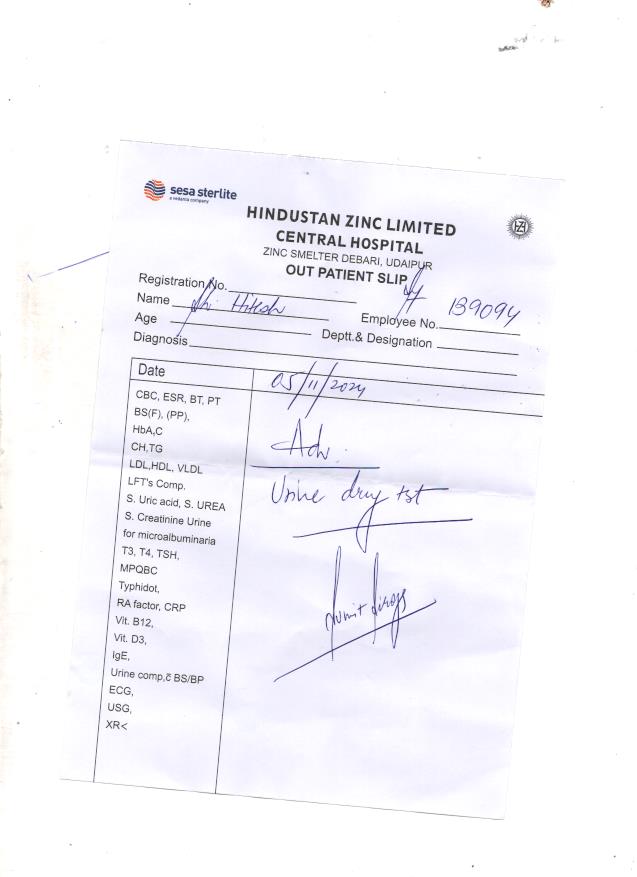 sesa sterlite
a vedanta company
HINDUSTAN ZINC LIMITED
CENTRAL HOSPITAL
ZINC SMELTER DEBARI, UDAIPUR
OUT PATIENT SLIP
Registration No.
Name Hitesh
Employee No. 139094
Age
Deptt.& Designation
Diagnosis
Date 05/11/2024
CBC, ESR, BT, PT
BS(F), (PP),
HbA,C
CH,TG
LDL,HDL, VLDL
LFT's Comp.
S. Uric acid, S. UREA
S. Creatinine Urine
for microalbuminaria
T3, T4, TSH,
MPQBC
Typhidot,
RA factor, CRP
Vit. B12,
Vit. D3,
IgE,
Urine comp,č BS/BP
ECG,
USG,
XR<
Adv.
Urine drug tst